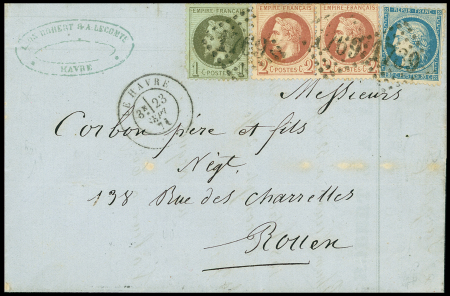 HAVRE
EMPIRE FRANÇAIS
EMPIRE FRANÇAIS
EMPIRE FRANÇAIS
REPUB. FRANC.
1 C POSTES 1 C
POSTES
POSTES
LE HAVRE
23
SEPT
71
Messieurs
Corbon père et fils
Négt.
138 Rue des charrettes
Rouen